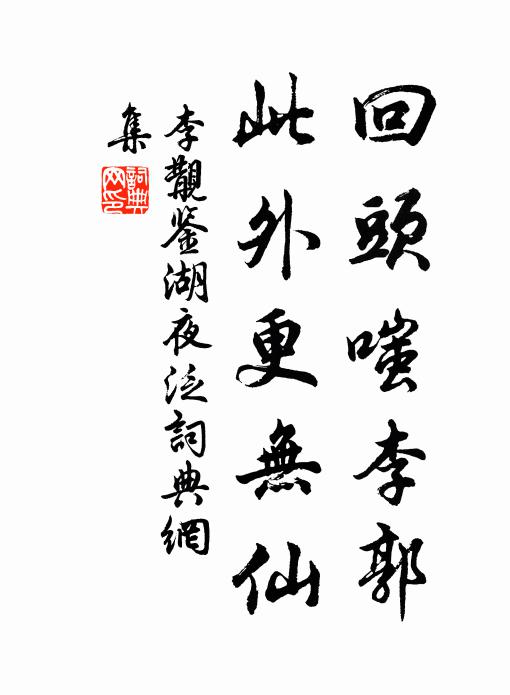 回頭嗤李郭
此外更無仙
李覯鉴湖夜泛詞典網
集
詞典网印